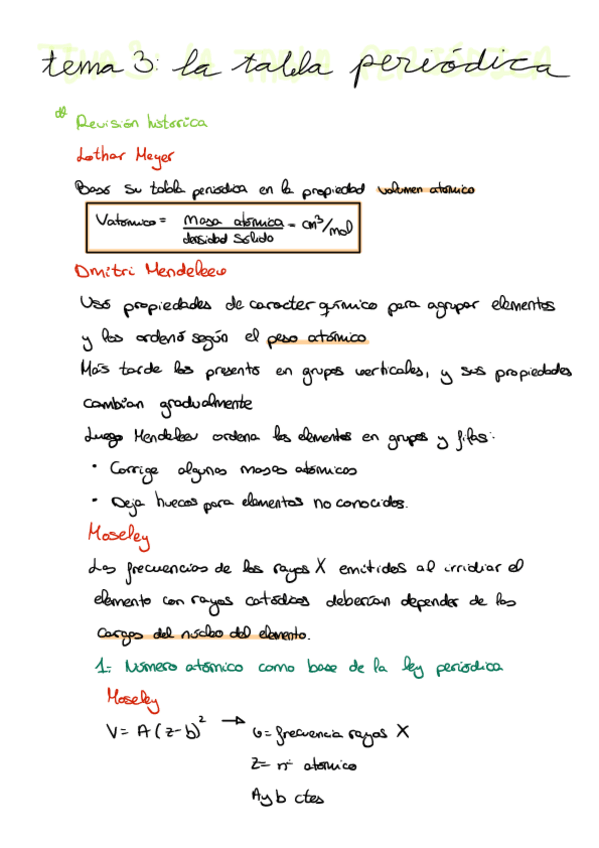 tema 3: la tabla periódica
Revisión historica
Lothar Meyer
Basó su tabla periodica en la propiedad volumen atomico
Vatomico = masa atomica / densidad solido = cm³/mol
Dmitri Mendeleev
Usó propiedades de caracter químico para agrupar elementos
y los ordenó según el peso atómico
Más tarde los presento en grupos verticales, y sus propiedades
cambian gradualmente
Luego Mendeleev ordena los elementos en grupos y filas:
• Corrige algunas masas atomicas
• Deja huecos para elementos no conocidos.
Moseley
Las frecuencias de los rayos X emitidos al irridiar el
elemento con rayos catódicos deberían depender de las
cargas del nucleo del elemento.
1. Número atómico como base de la ley periodica
Moseley
V = A (z-b)² → υ = frecuencia rayos X
Z = nº atomico
A y b ctes